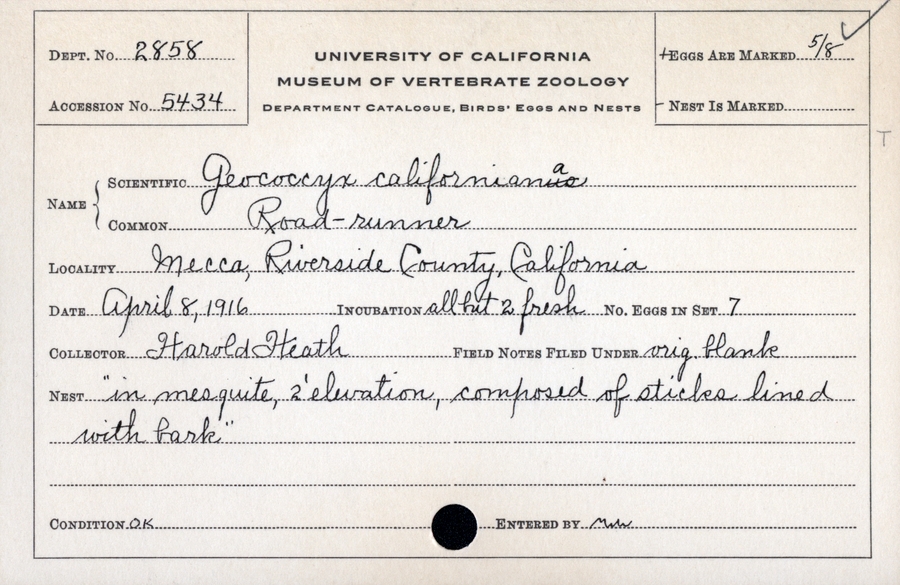 DEPT. No. 2858
ACCESSION No. 5434
UNIVERSITY OF CALIFORNIA
MUSEUM OF VERTEBRATE ZOOLOGY
DEPARTMENT CATALOGUE, BIRDS' EGGS AND NESTS
+EGGS ARE MARKED 5/8 ✓
- NEST IS MARKED
T
NAME { SCIENTIFIC Geococcyx californiana
COMMON Road-runner
LOCALITY Mecca, Riverside County, California
DATE April 8, 1916 INCUBATION all but 2 fresh NO. EGGS IN SET 7
COLLECTOR Harold Heath FIELD NOTES FILED UNDER orig. blank
NEST "in mesquite, 2' elevation, composed of sticks lined
with bark"
CONDITION OK ENTERED BY